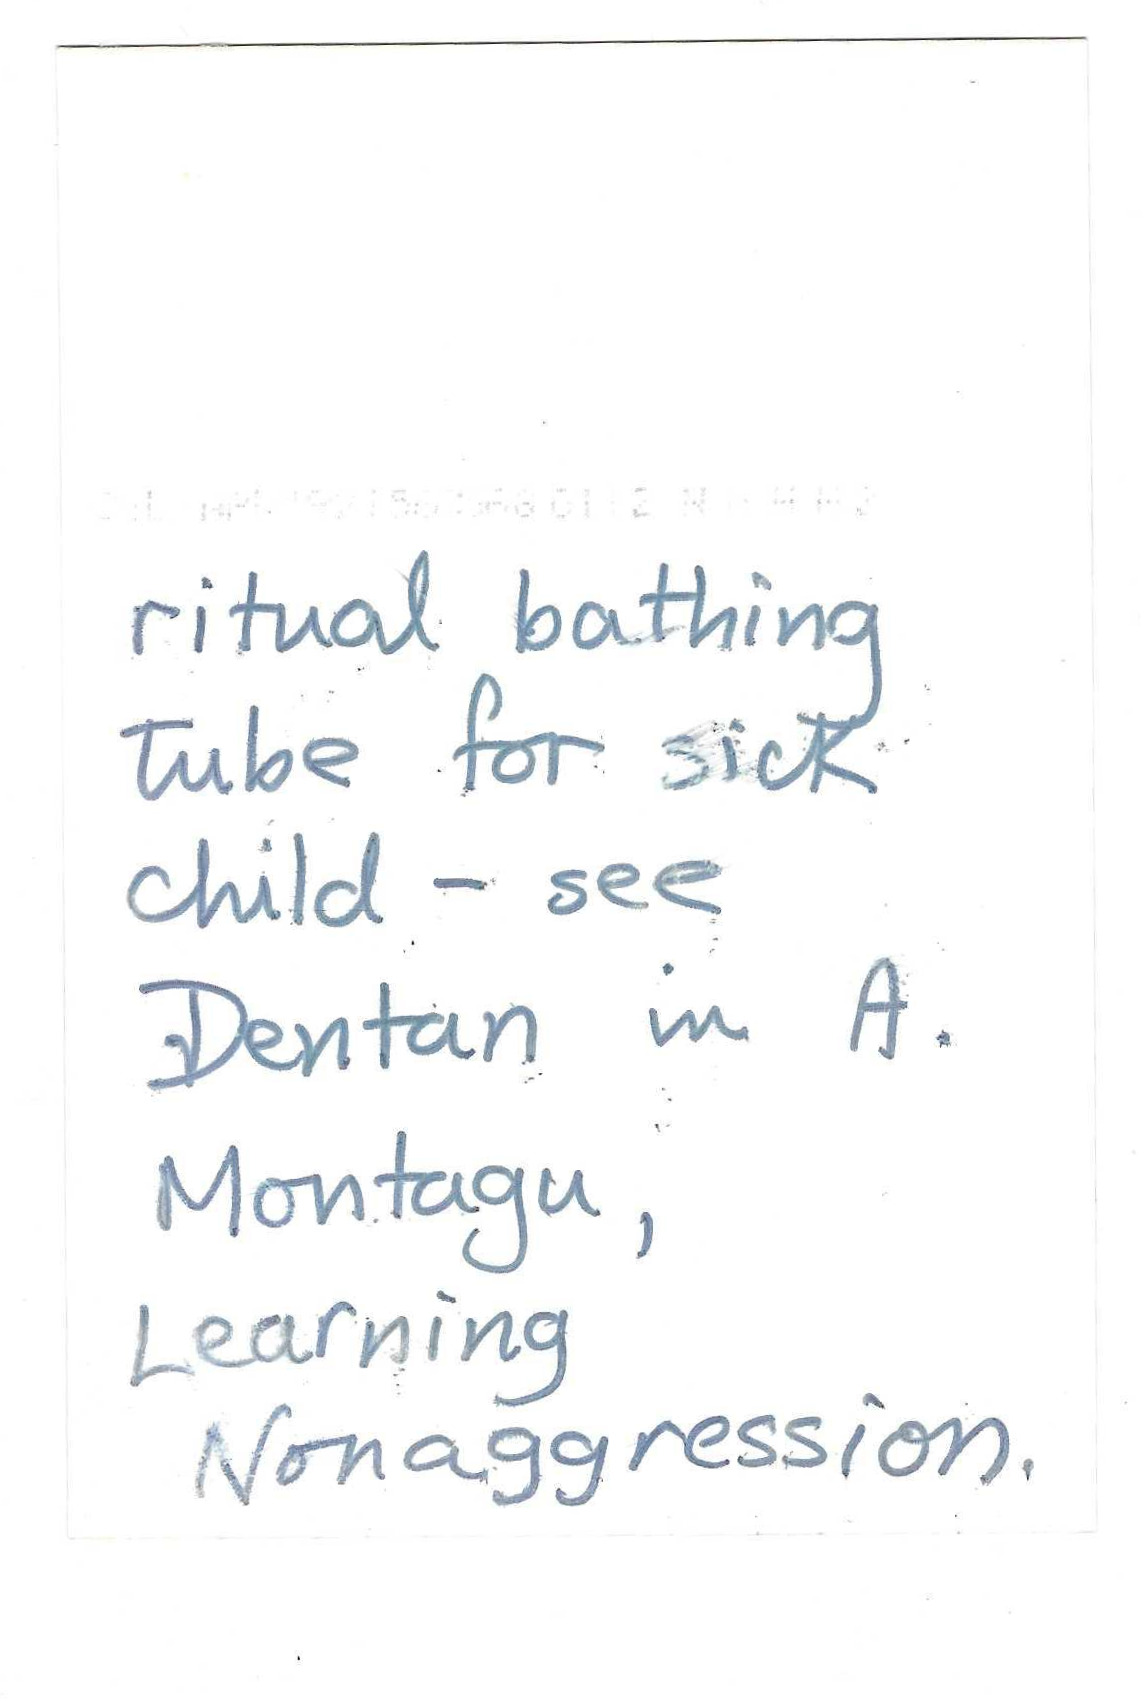 ritual bathing
tube for sick
child - see
Dentan in A.
Montagu,
Learning
Nonaggression.